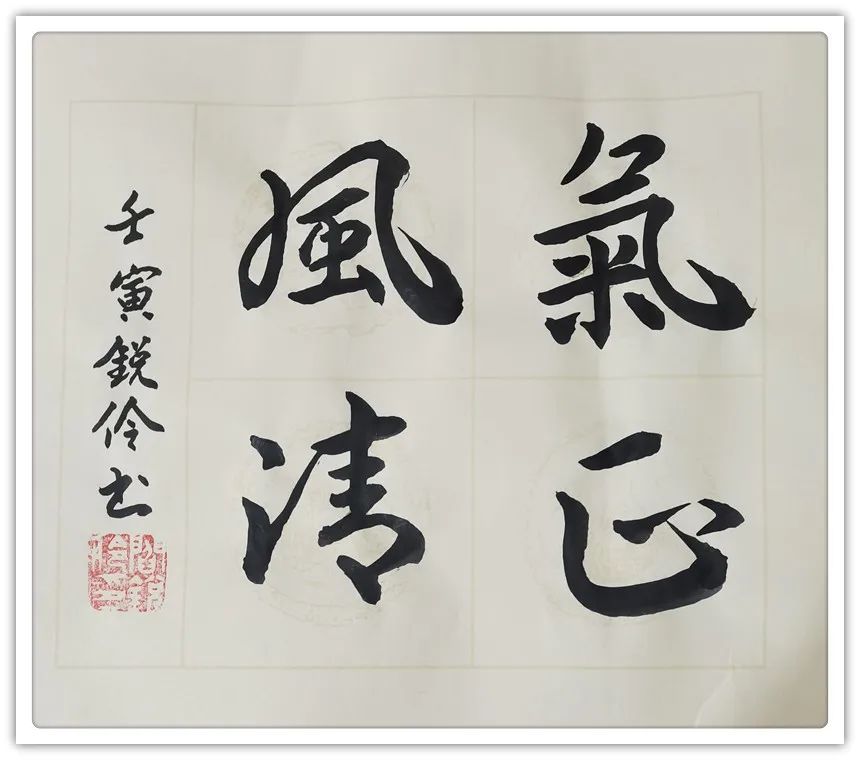 氣正
風清
壬寅銳伶书